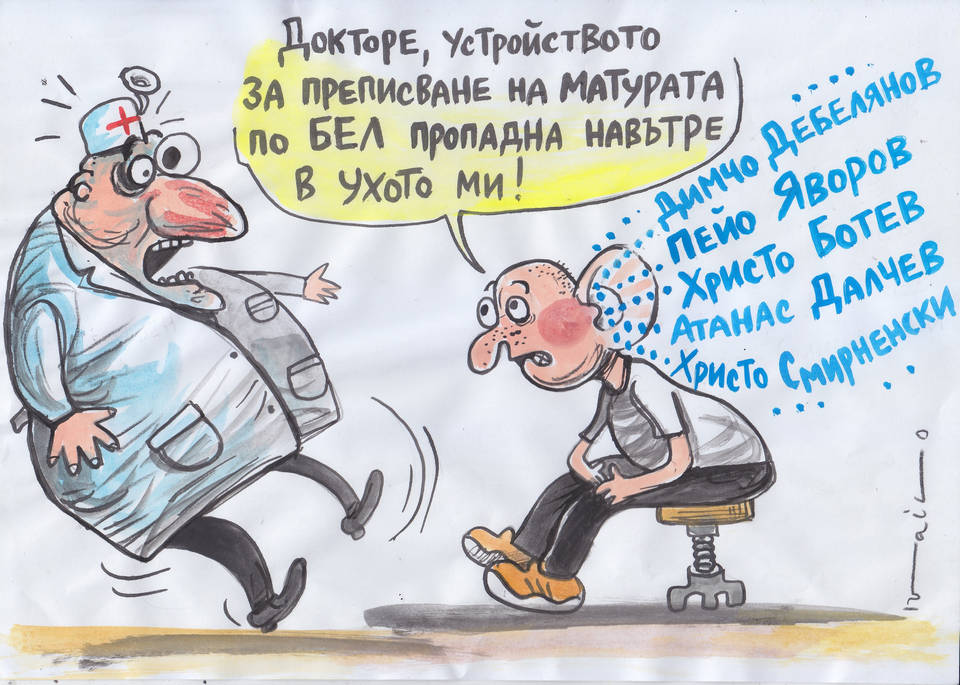 Докторе, устройството
за преписване на матурата
по БЕЛ пропадна навътре
в ухото ми!
Димчо Дебелянов
Пейо Яворов
Христо Ботев
Атанас Далчев
Христо Смирненски